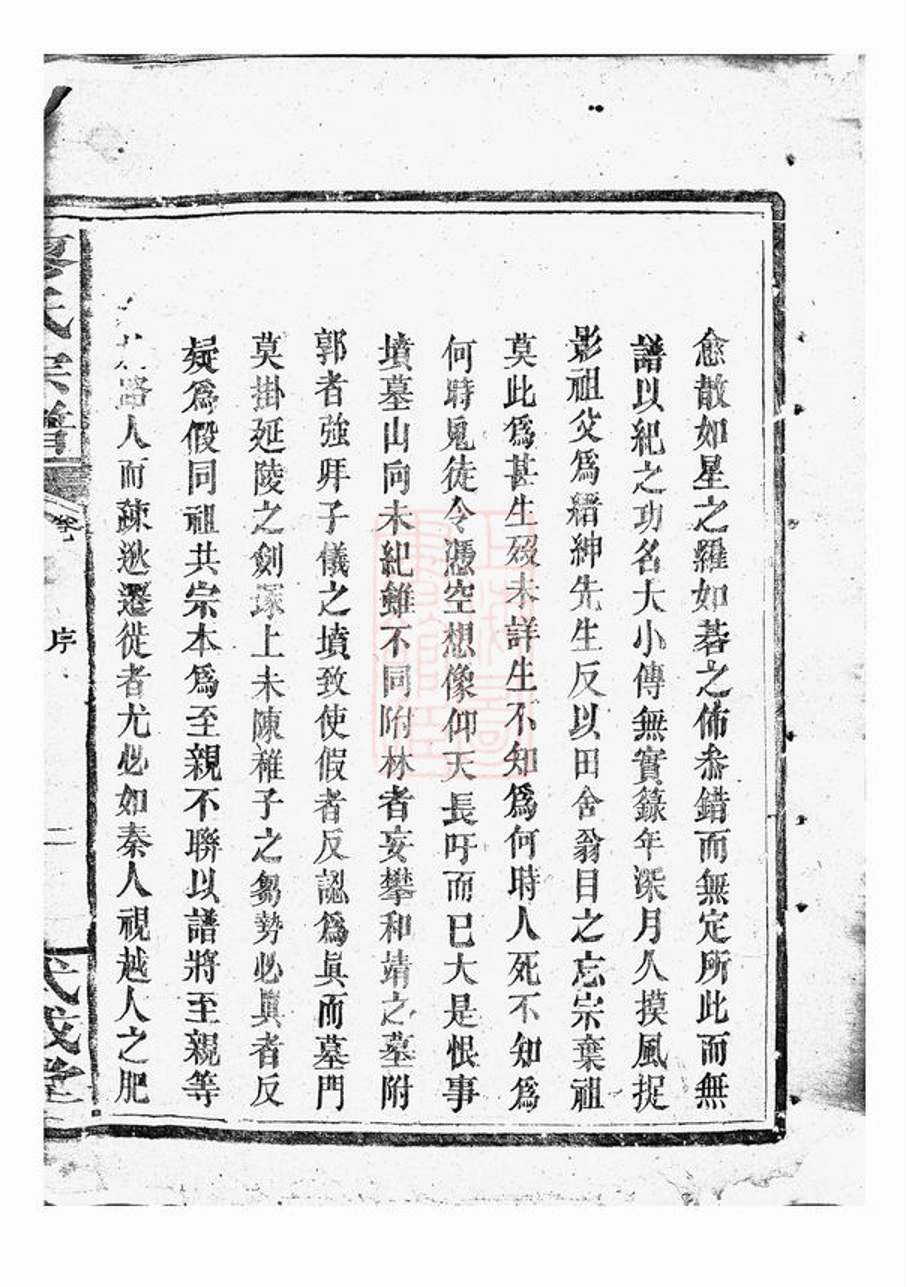 愈散如星之羅如碁之佈叅錯而無定所此而無
譜以紀之功名大小傳無實錄年深月久摸風捉
影祖父爲縉紳先生反以田舍翁目之忘宗棄祖
莫此爲甚生歿未詳生不知爲何時人死不知爲
何時鬼徒令憑空想像仰天長吁而已大是恨事
墳墓山向未紀雖不同附林者妄攀和靖之墓附
郭者強拜子儀之墳致使假者反認爲眞而墓門
莫掛延陵之劍塚上未陳稚子之芻勢必眞者反
疑爲假同祖共宗本爲至親不聯以譜將至親等
路人而疎逖遷徙者尤必如秦人視越人之肥
廖氏宗譜
卷
序
二
武威堂